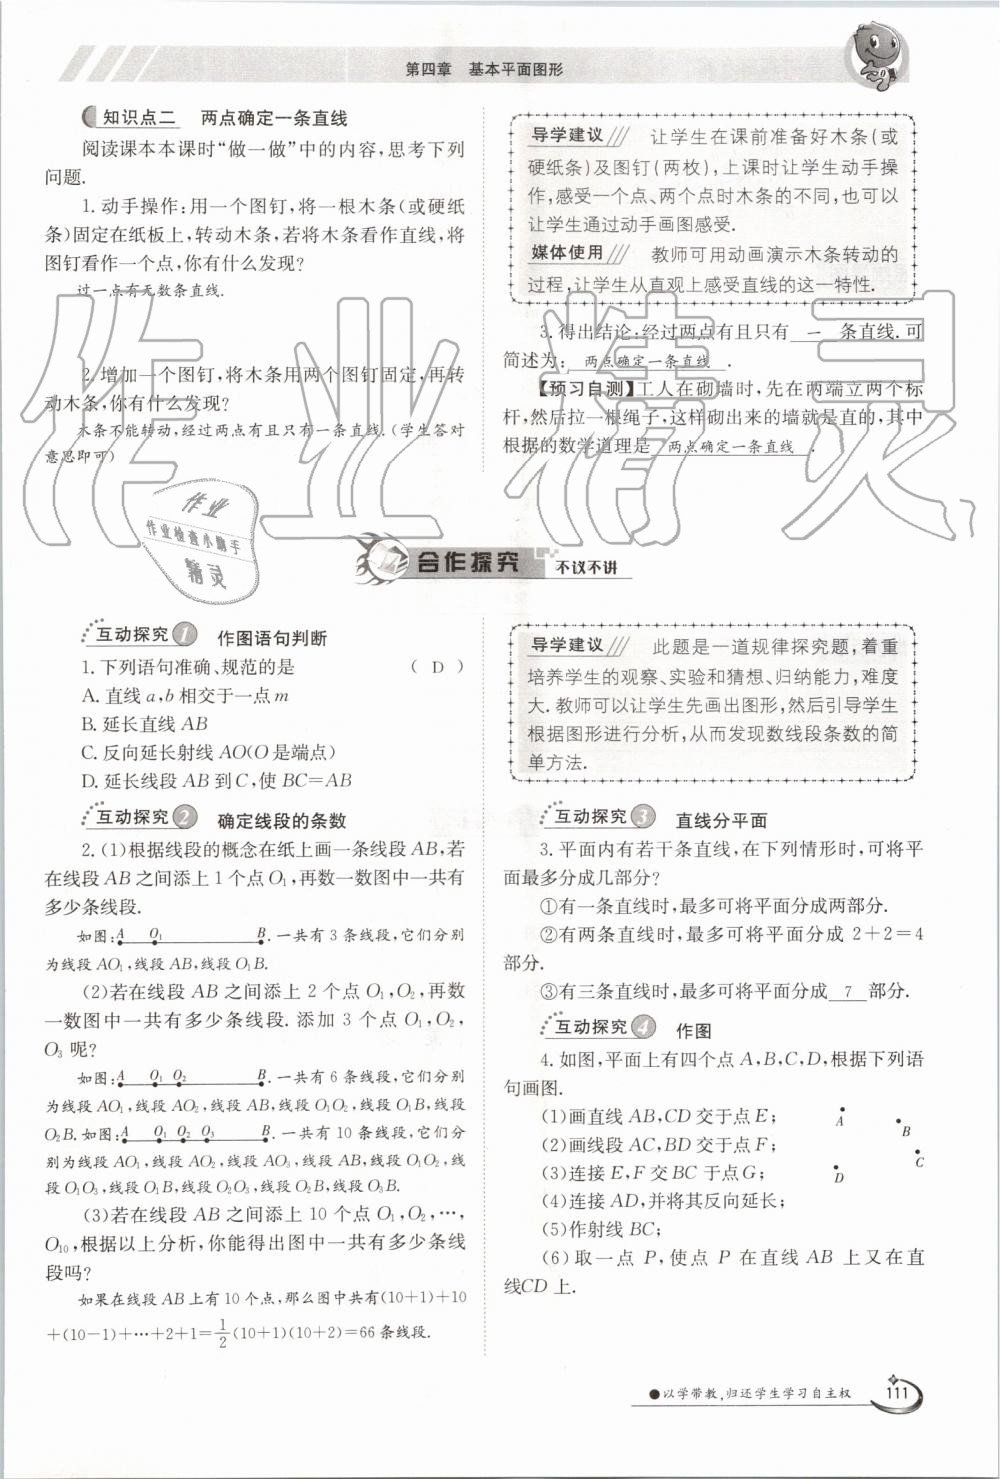 第四章　基本平面图形
知识点二　两点确定一条直线
阅读课本本课时“做一做”中的内容,思考下列
问题.
1.动手操作:用一个图钉,将一根木条(或硬纸
条)固定在纸板上,转动木条,若将木条看作直线,将
图钉看作一个点,你有什么发现?
过一点有无数条直线.
2.增加一个图钉,将木条用两个图钉固定,再转
动木条,你有什么发现?
木条不能转动,经过两点有且只有一条直线.(学生答对
意思即可)
导学建议 让学生在课前准备好木条(或
硬纸条)及图钉(两枚),上课时让学生动手操
作,感受一个点、两个点时木条的不同,也可以
让学生通过动手画图感受.
媒体使用 教师可用动画演示木条转动的
过程,让学生从直观上感受直线的这一特性.
3.得出结论:经过两点有且只有 一 条直线.可
简述为: 两点确定一条直线 .
【预习自测】工人在砌墙时,先在两端立两个标
杆,然后拉一根绳子,这样砌出来的墙就是直的,其中
根据的数学道理是 两点确定一条直线 .
作业精灵
作业
作业检查小助手
精灵
合作探究 不议不讲
互动探究1 作图语句判断
1.下列语句准确、规范的是 ( D )
A.直线a,b相交于一点m
B.延长直线AB
C.反向延长射线AO(O是端点)
D.延长线段AB到C,使BC=AB
互动探究2 确定线段的条数
2.(1)根据线段的概念在纸上画一条线段AB,若
在线段AB之间添上1个点O₁,再数一数图中一共有
多少条线段.
如图:A O₁ B.一共有3条线段,它们分别
为线段AO₁,线段AB,线段O₁B.
(2)若在线段AB之间添上2个点O₁,O₂,再数
一数图中一共有多少条线段.添加3个点O₁,O₂,
O₃呢?
如图:A O₁ O₂ B.一共有6条线段,它们分别
为线段AO₁,线段AO₂,线段AB,线段O₁O₂,线段O₁B,线段
O₂B.如图:A O₁ O₂ O₃ B.一共有10条线段,它们分
别为线段AO₁,线段AO₂,线段AO₃,线段AB,线段O₁O₂,线
段O₁O₃,线段O₁B,线段O₂O₃,线段O₂B,线段O₃B.
(3)若在线段AB之间添上10个点O₁,O₂,…,
O₁₀,根据以上分析,你能得出图中一共有多少条线
段吗?
如果在线段AB上有10个点,那么图中共有(10+1)+10
+(10-1)+…+2+1=1/2(10+1)(10+2)=66条线段.
导学建议 此题是一道规律探究题,着重
培养学生的观察、实验和猜想、归纳能力,难度
大.教师可以让学生先画出图形,然后引导学生
根据图形进行分析,从而发现数线段条数的简
单方法.
互动探究3 直线分平面
3.平面内有若干条直线,在下列情形时,可将平
面最多分成几部分?
①有一条直线时,最多可将平面分成两部分.
②有两条直线时,最多可将平面分成2+2=4
部分.
③有三条直线时,最多可将平面分成 7 部分.
互动探究4 作图
4.如图,平面上有四个点A,B,C,D,根据下列语
句画图.
(1)画直线AB,CD交于点E;
(2)画线段AC,BD交于点F;
(3)连接E,F交BC于点G;
(4)连接AD,并将其反向延长;
(5)作射线BC;
(6)取一点P,使点P在直线AB上又在直
线CD上.
A
B
C
D
●以学带教,归还学生学习自主权
111